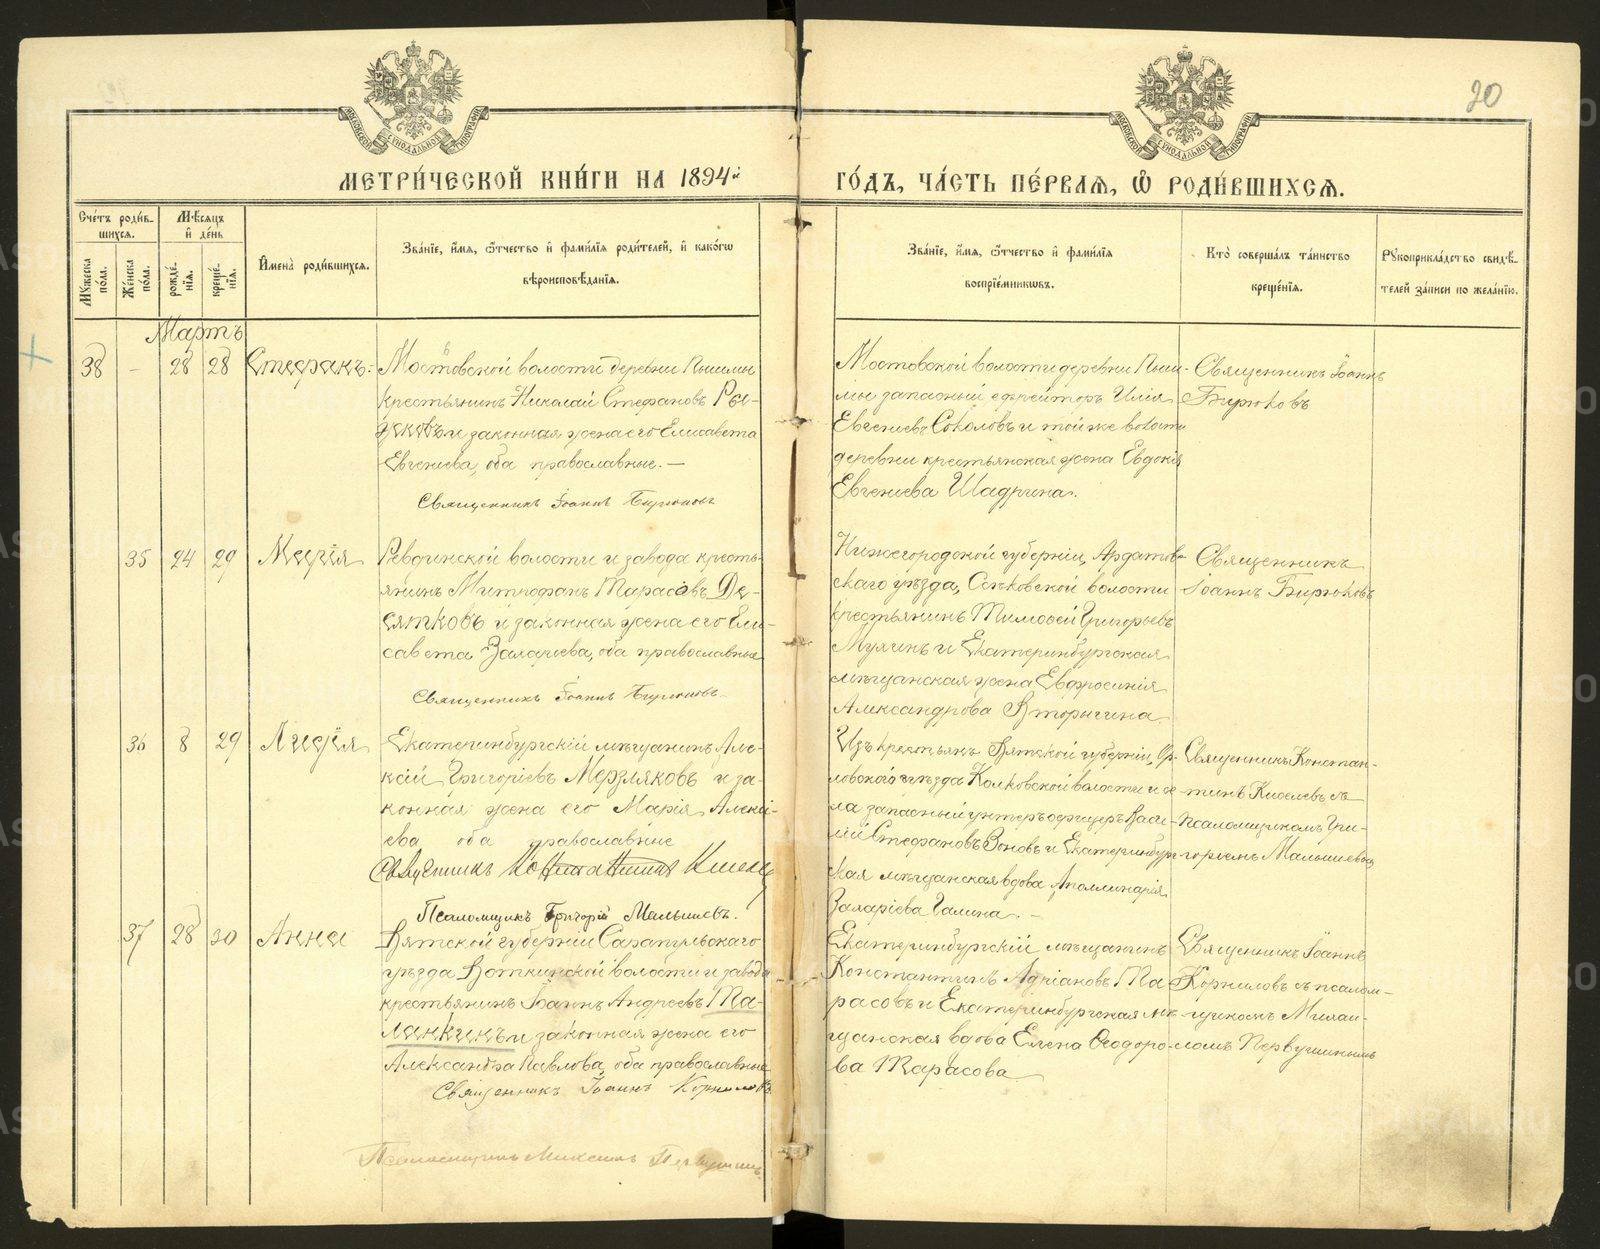 20
МОСКОВСКОЙ СѴНОДАЛЬНОЙ ТИПОГРАФІИ
МОСКОВСКОЙ СѴНОДАЛЬНОЙ ТИПОГРАФІИ
МЕТРИ́ЧЕСКОЙ КНИ́ГИ НА 1894й
ГО́ДЪ, ЧА́СТЬ ПЕ́РВАЯ, Ѡ҆ РОДИ́ВШИХСЯ.
Сче́тъ роди́в-
шихся.
Му́жеска по́ла.
Же́нска по́ла.
Мѣ́сяцъ
и҆ де́нь
рожде́-
нїя.
креще́-
нїя.
И҆мена̀ роди́вшихся.
Зва́нїе, и҆́мя, ѻ҆́тчество и҆ фами́лїя роди́телей, и҆ како́гѡ
вѣроисповѣ́данїя.
Зва́нїе, и҆́мя, ѻ҆́тчество и҆ фами́лїя
воспрїе́мникѡвъ.
Кто̀ соверша́лъ та́инство
креще́нїя.
Рꙋкоприкла́дство свидѣ́-
телей за́писи по жела́нїю.
Мартъ
38 - 28 28 Стефанъ.
Мостовской волости деревни Пышмы
крестьянинъ Николай Стефановъ Ры-
жковъ и законная жена его Елисавета
Евгениева, оба православные. —
Священникъ Іоаннъ Бирюковъ
Мостовской волости деревни Пыш-
мы запасный ефрейторъ Илія
Евгениевъ Соколовъ и той же волости
деревни крестьянская жена Евдокія
Евгениева Шадрина.
Священникъ Іоаннъ
Бирюковъ
35 24 29 Марія
Ревдинской волости и завода кресть-
янинъ Митрофанъ Тарасовъ Де-
сятковъ и законная жена его Ели-
савета Захариева, оба православные
Священникъ Іоаннъ Бирюковъ.
Нижегородской губерніи, Ардатов-
скаго уѣзда, волости
крестьянинъ Тимофей Григорьевъ
Мухинъ и Екатеринбургская
мѣщанская жена Евфросинія
Александрова Вторыгина
Священникъ
Іоаннъ Бирюковъ
36 8 29 Лидія
Екатеринбургскій мѣщанинъ Але-
ксій Григоріевъ Мерзляковъ и за-
конная жена его Марія Алексі-
ева оба православные
Священникъ Константинъ Киселев
Псаломщикъ Григорій Малышевъ.
Изъ крестьянъ Вятской губерніи, Ор-
ловскаго уѣзда Колковской волости и се-
ла запасный унтеръ офицеръ Васи-
лій Стефановъ Зоновъ и Екатеринбург-
ская мѣщанская вдова Аполлинарія
Захаріева Галина. —
Священникъ Констан-
тинъ Киселевъ съ
псаломщикомъ Гри-
горіемъ Малышевымъ
37 28 30 Анна
Вятской губерніи Сарапульскаго
уѣзда Воткинской волости и завода
крестьянинъ Іоаннъ Андреевъ Та-
ланкинъ и законная жена его
Александра Павлова, оба православные
Священникъ Іоаннъ Корниловъ
Псаломщикъ Михаилъ Первушинъ
Екатеринбургскій мѣщанинъ
Константинъ Адріановъ Та-
расовъ и Екатеринбургская мѣ-
щанская вдова Елена Ѳеодоро-
ва Тарасова
Священникъ Іоаннъ
Корниловъ съ псалом-
щикомъ Михаи-
ломъ Первушинымъ